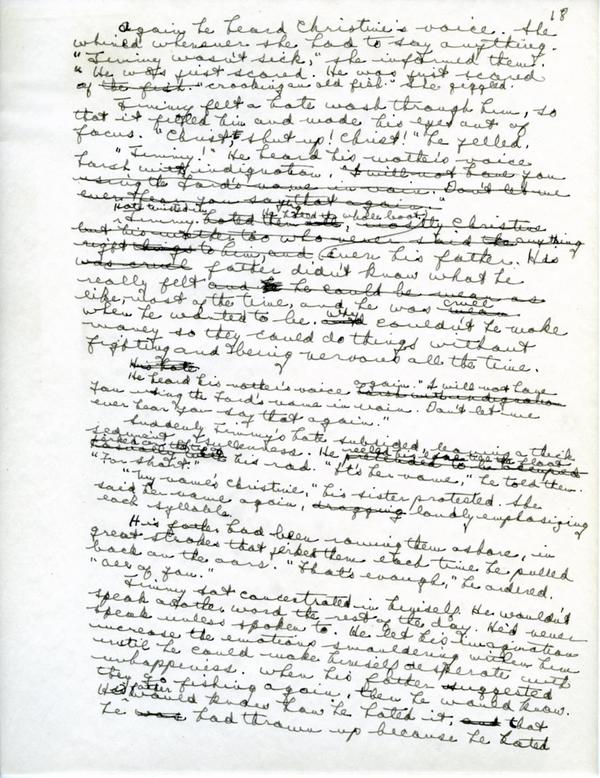 18
Again he heard Christine's voice. She
whined whenever she had to say anything.
"Timmy wasn't sick," she informed them.
"He was just scared. He was just scared
of the fish." "croaking an old fish." She giggled.
Timmy felt a hate wash through him, so
that it filled him and made his eyes out of
focus. "Christ, shut up! Christ!" he yelled.
"Timmy!" He heard his mother's voice
harsh with indignation. "I will not have you
using the Lord's name in vain. Don't let me
ever hear you say that again."
Hate twisted in
He hated the whole boat,
Timmy hated them all, mostly Christine
but his mother too who never said the anything
right things to him, and even his father. His
was cruel father didn't know what he
really felt and he could be mean as
cruel
like, most of the time, and he was mean
when he wanted to be. Why couldn't he make
money so they could do things without
fighting and being nervous all the time.
His hate
He heard his mother's voice again. "I will not have
harsh with indignation
you using the Lord's name in vain. Don't let me
ever hear you say that again."
Suddenly Timmy's hate subsided, leaving a thick
sediment of sullenness. He
pretended to be
casually with his rod. "It's her name," he told them.
"For short."
"My name's Christine," his sister protested. She
said her name again, dragging loudly emphasizing
each syllable.
His father had been rowing them ashore, in
great strokes that jerked them each time he pulled
back on the oars. "That's enough," he ordered,
"all of you."
Timmy sat concentrated in himself. He wouldn't
speak another word the rest of the day. He'd never
speak unless spoken to. He let his imagination
increase the emotions smouldering within him
until he could make himself desperate with
unhappiness. When his father suggested
they go fishing again, then he would know.
His father
He would know how he hated it, and that
he was had thrown up because he hated